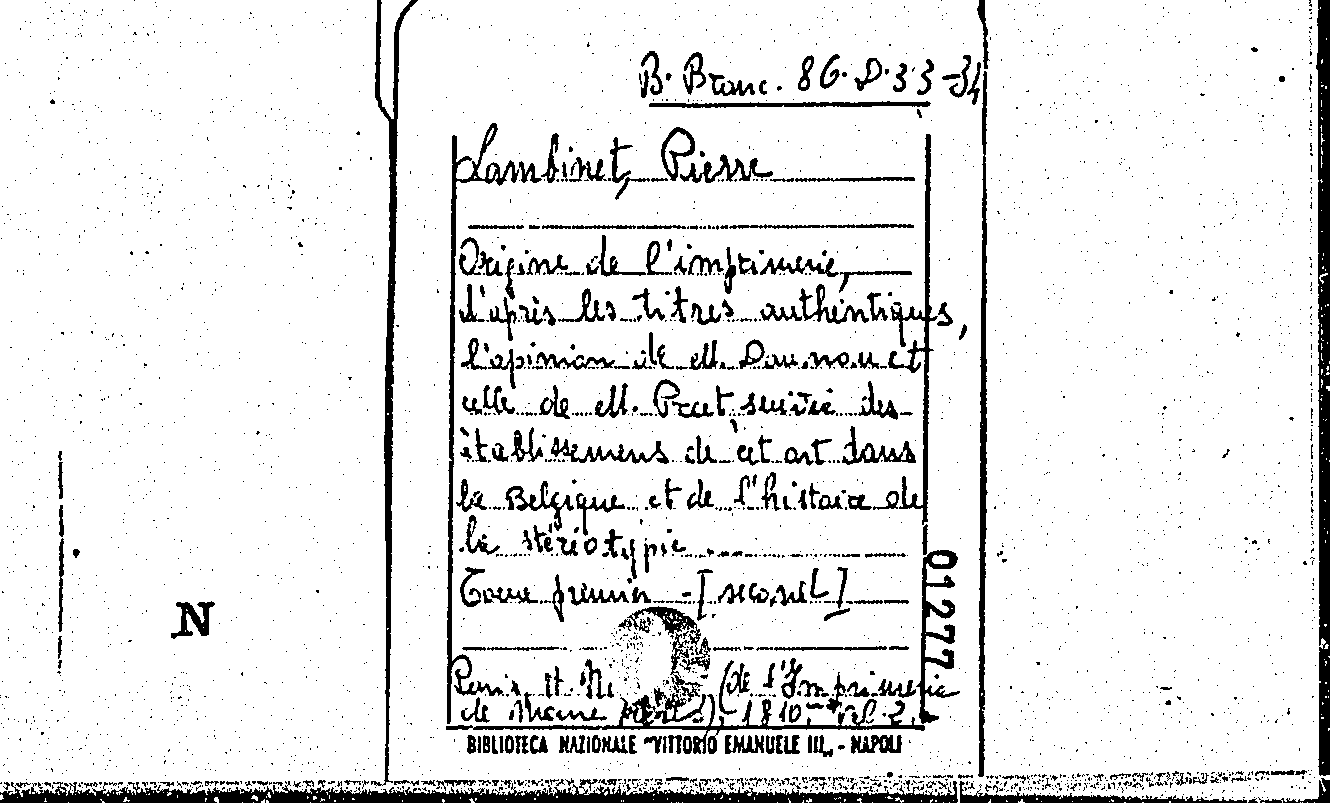 B. Branc. 86. D. 33-34
Lambinet, Pierre
Origine de l'imprimerie,
d'après les titres authentiques,
l'opinion de M. Daunou et
celle de M. Praet, suivie des
établissemens de cet art dans
la Belgique et de l'histoire de
la stéréotypie ....
Tome premier -[second]
Paris, H. Ni (de l'Imprimerie
de Mame frères), 1810, vol. 2.
BIBLIOTECA NAZIONALE "VITTORIO EMANUELE III„ - NAPOLI
01277
N